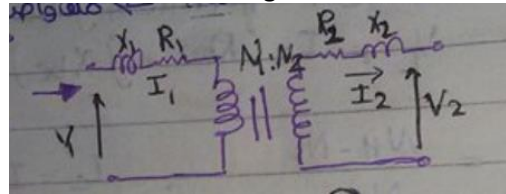 X1 R1 N1:N2 R2 X2
I1 I2 V2
V